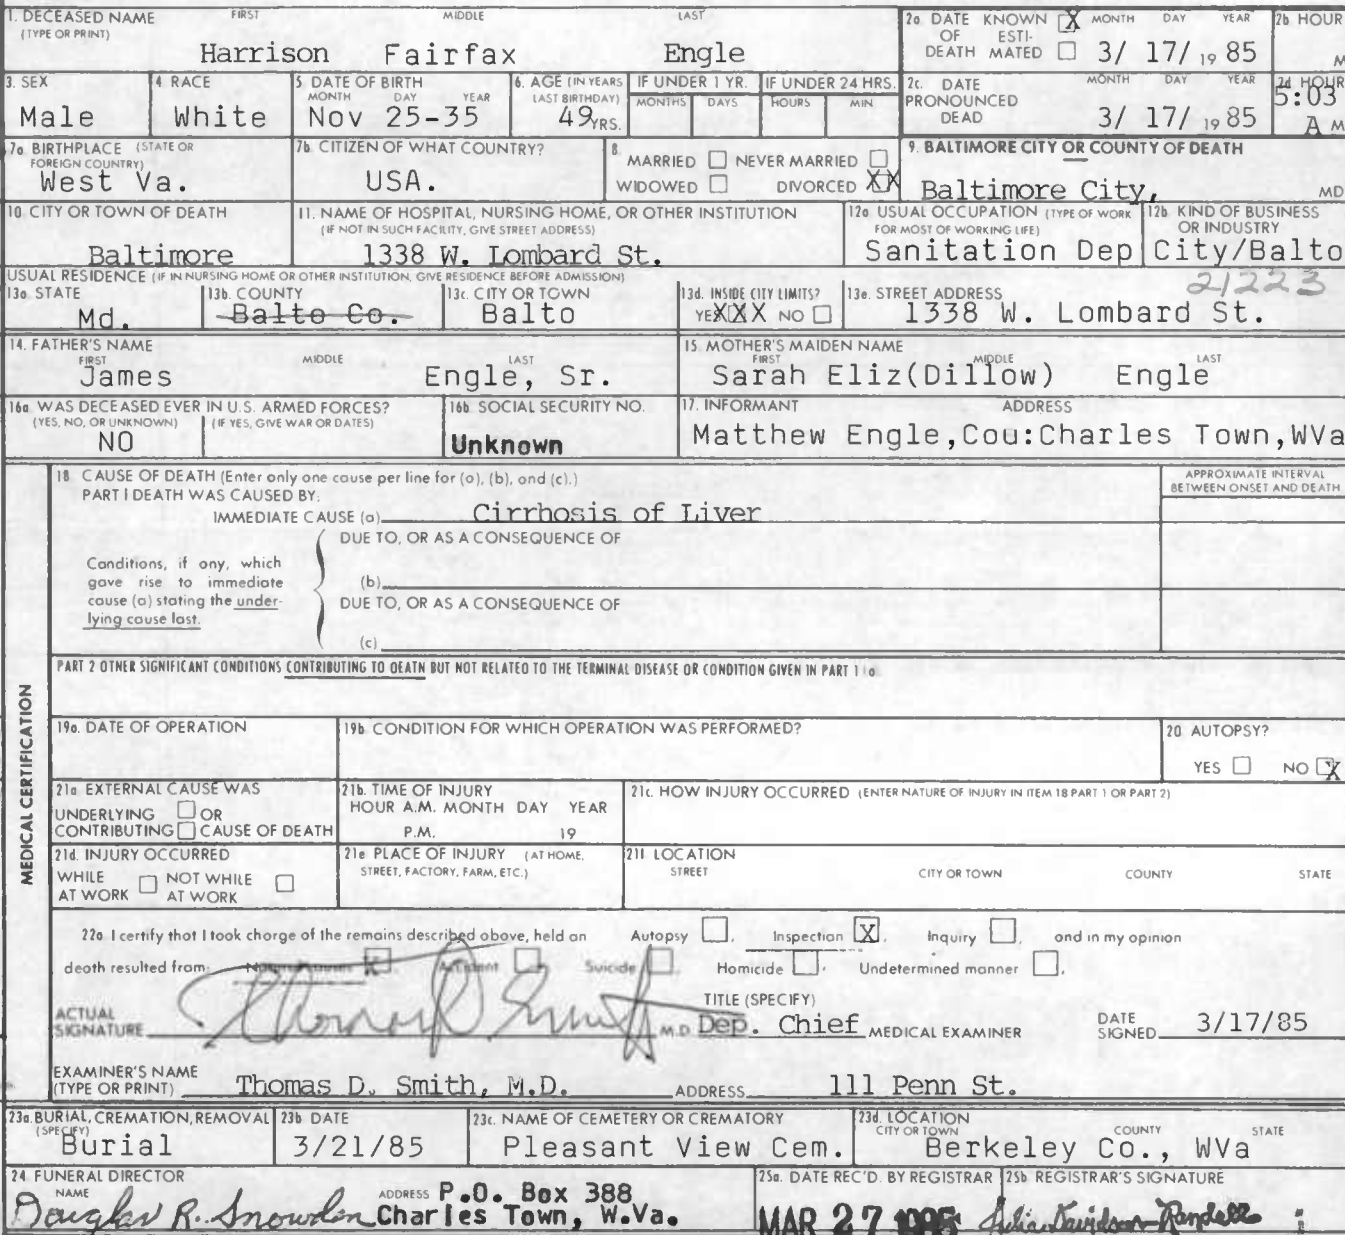 1. DECEASED NAME FIRST MIDDLE LAST
(TYPE OR PRINT)
Harrison Fairfax Engle
2a. DATE KNOWN X MONTH DAY YEAR
OF ESTI-
DEATH MATED 3/ 17/ 19 85
2b HOUR
M
3. SEX
Male
4 RACE
White
5 DATE OF BIRTH
MONTH DAY YEAR
Nov 25-35
6. AGE (IN YEARS
LAST BIRTHDAY)
49 YRS.
IF UNDER 1 YR.
MONTHS DAYS
IF UNDER 24 HRS.
HOURS MIN.
2c. DATE MONTH DAY YEAR
PRONOUNCED
DEAD 3/ 17/ 19 85
2d HOUR
5:03
A M
7a BIRTHPLACE (STATE OR
FOREIGN COUNTRY)
West Va.
7b. CITIZEN OF WHAT COUNTRY?
USA.
8.
MARRIED NEVER MARRIED
WIDOWED DIVORCED XX
9. BALTIMORE CITY OR COUNTY OF DEATH
Baltimore City, MD
10. CITY OR TOWN OF DEATH
Baltimore
11. NAME OF HOSPITAL, NURSING HOME, OR OTHER INSTITUTION
(IF NOT IN SUCH FACILITY, GIVE STREET ADDRESS)
1338 W. Lombard St.
12a USUAL OCCUPATION (TYPE OF WORK
FOR MOST OF WORKING LIFE)
Sanitation Dep
12b KIND OF BUSINESS
OR INDUSTRY
City/Balto
USUAL RESIDENCE (IF IN NURSING HOME OR OTHER INSTITUTION, GIVE RESIDENCE BEFORE ADMISSION)
13a. STATE
Md.
13b. COUNTY
Balto Co.
13c. CITY OR TOWN
Balto
13d. INSIDE CITY LIMITS?
YEXXX NO
13e. STREET ADDRESS 21223
1338 W. Lombard St.
14. FATHER'S NAME
FIRST MIDDLE LAST
James Engle, Sr.
15. MOTHER'S MAIDEN NAME
FIRST MIDDLE LAST
Sarah Eliz(Dillow) Engle
16a WAS DECEASED EVER IN U.S. ARMED FORCES?
(YES, NO, OR UNKNOWN) (IF YES, GIVE WAR OR DATES)
NO
16b SOCIAL SECURITY NO.
Unknown
17. INFORMANT ADDRESS
Matthew Engle,Cou:Charles Town,WVa
MEDICAL CERTIFICATION
18. CAUSE OF DEATH (Enter only one cause per line for (a), (b), and (c).)
PART I DEATH WAS CAUSED BY:
APPROXIMATE INTERVAL
BETWEEN ONSET AND DEATH
IMMEDIATE CAUSE (a) Cirrhosis of Liver
DUE TO, OR AS A CONSEQUENCE OF
Conditions, if any, which
gave rise to immediate
cause (a) stating the under-
lying cause last.
(b)
DUE TO, OR AS A CONSEQUENCE OF
(c)
PART 2 OTHER SIGNIFICANT CONDITIONS CONTRIBUTING TO DEATH BUT NOT RELATED TO THE TERMINAL DISEASE OR CONDITION GIVEN IN PART 1 (a
19a. DATE OF OPERATION
19b. CONDITION FOR WHICH OPERATION WAS PERFORMED?
20 AUTOPSY?
YES NO X
21a EXTERNAL CAUSE WAS
UNDERLYING OR
CONTRIBUTING CAUSE OF DEATH
21b. TIME OF INJURY
HOUR A.M. MONTH DAY YEAR
P.M. 19
21c. HOW INJURY OCCURRED (ENTER NATURE OF INJURY IN ITEM 18 PART 1 OR PART 2)
21d. INJURY OCCURRED
WHILE AT WORK NOT WHILE AT WORK
21e PLACE OF INJURY (AT HOME,
STREET, FACTORY, FARM, ETC.)
21f. LOCATION
STREET CITY OR TOWN COUNTY STATE
22a I certify that I took charge of the remains described above, held an Autopsy , Inspection X , Inquiry , and in my opinion
death resulted from: Natural causes X , Accident , Suicide , Homicide , Undetermined manner .
ACTUAL
SIGNATURE Thomas D. Smith M.D.
TITLE (SPECIFY)
Dep. Chief MEDICAL EXAMINER
DATE
SIGNED 3/17/85
EXAMINER'S NAME
(TYPE OR PRINT) Thomas D. Smith, M.D. ADDRESS 111 Penn St.
23a. BURIAL, CREMATION, REMOVAL
(SPECIFY)
Burial
23b DATE
3/21/85
23c. NAME OF CEMETERY OR CREMATORY
Pleasant View Cem.
23d. LOCATION
CITY OR TOWN COUNTY STATE
Berkeley Co., WVa
24 FUNERAL DIRECTOR
NAME
Douglas R. Snowden
ADDRESS P.O. Box 388
Charles Town, W.Va.
25a. DATE REC'D. BY REGISTRAR
MAR 27 1985
25b REGISTRAR'S SIGNATURE
Julia Davidson-Randall